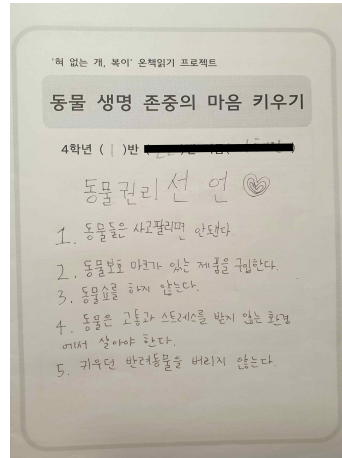 '혀 없는 개, 복이' 온책읽기 프로젝트
동물 생명 존중의 마음 키우기
4학년 ( 1 )반 (
동물권리 선 언
1. 동물들은 사고팔리면 안됀다.
2. 동물보호 마크가 있는 제품을 구입한다.
3. 동물쇼를 하지 않는다.
4. 동물은 고통과 스트레스를 받지 않는 환경
에서 살아야 한다.
5. 키우던 반려동물을 버리지 않는다.